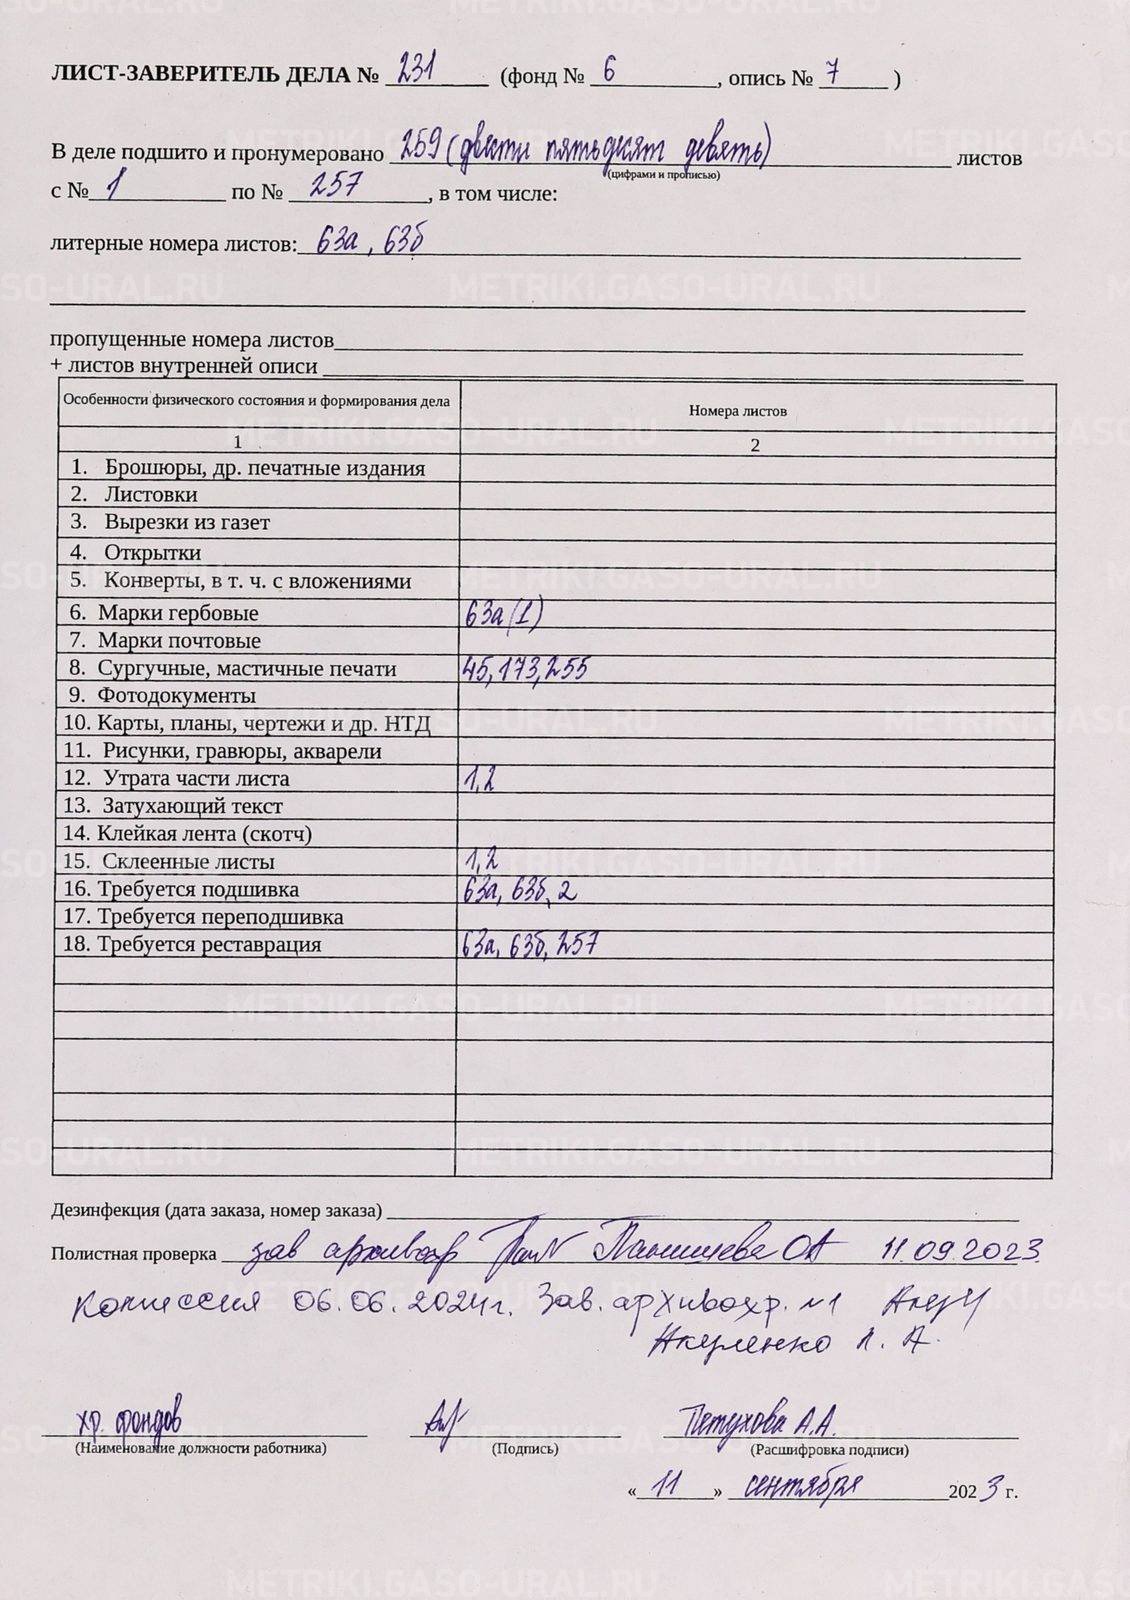 ЛИСТ-ЗАВЕРИТЕЛЬ ДЕЛА № 231 (фонд № 6, опись № 7)
В деле подшито и пронумеровано 259 (двести пятьдесят девять) листов
(цифрами и прописью)
с № 1 по № 257, в том числе:
литерные номера листов: 63а, 63б
пропущенные номера листов
+ листов внутренней описи
Особенности физического состояния и формирования дела Номера листов
1 2
1. Брошюры, др. печатные издания
2. Листовки
3. Вырезки из газет
4. Открытки
5. Конверты, в т. ч. с вложениями
6. Марки гербовые 63а(1)
7. Марки почтовые
8. Сургучные, мастичные печати 45, 173, 255
9. Фотодокументы
10. Карты, планы, чертежи и др. НТД
11. Рисунки, гравюры, акварели
12. Утрата части листа 1,2
13. Затухающий текст
14. Клейкая лента (скотч)
15. Склеенные листы 1,2
16. Требуется подшивка 63а, 63б, 2
17. Требуется переподшивка
18. Требуется реставрация 63а, 63б, 257
Дезинфекция (дата заказа, номер заказа)
Полистная проверка зав архивохр ОА 11.09.2023
Комиссия 06.06.2024г. Зав. архивохр. №1
Акуленко Л. А.
хр. фондов Петухова А.А.
(Наименование должности работника) (Подпись) (Расшифровка подписи)
«11» сентября 2023 г.
METRIKI.GASO-URAL.RU